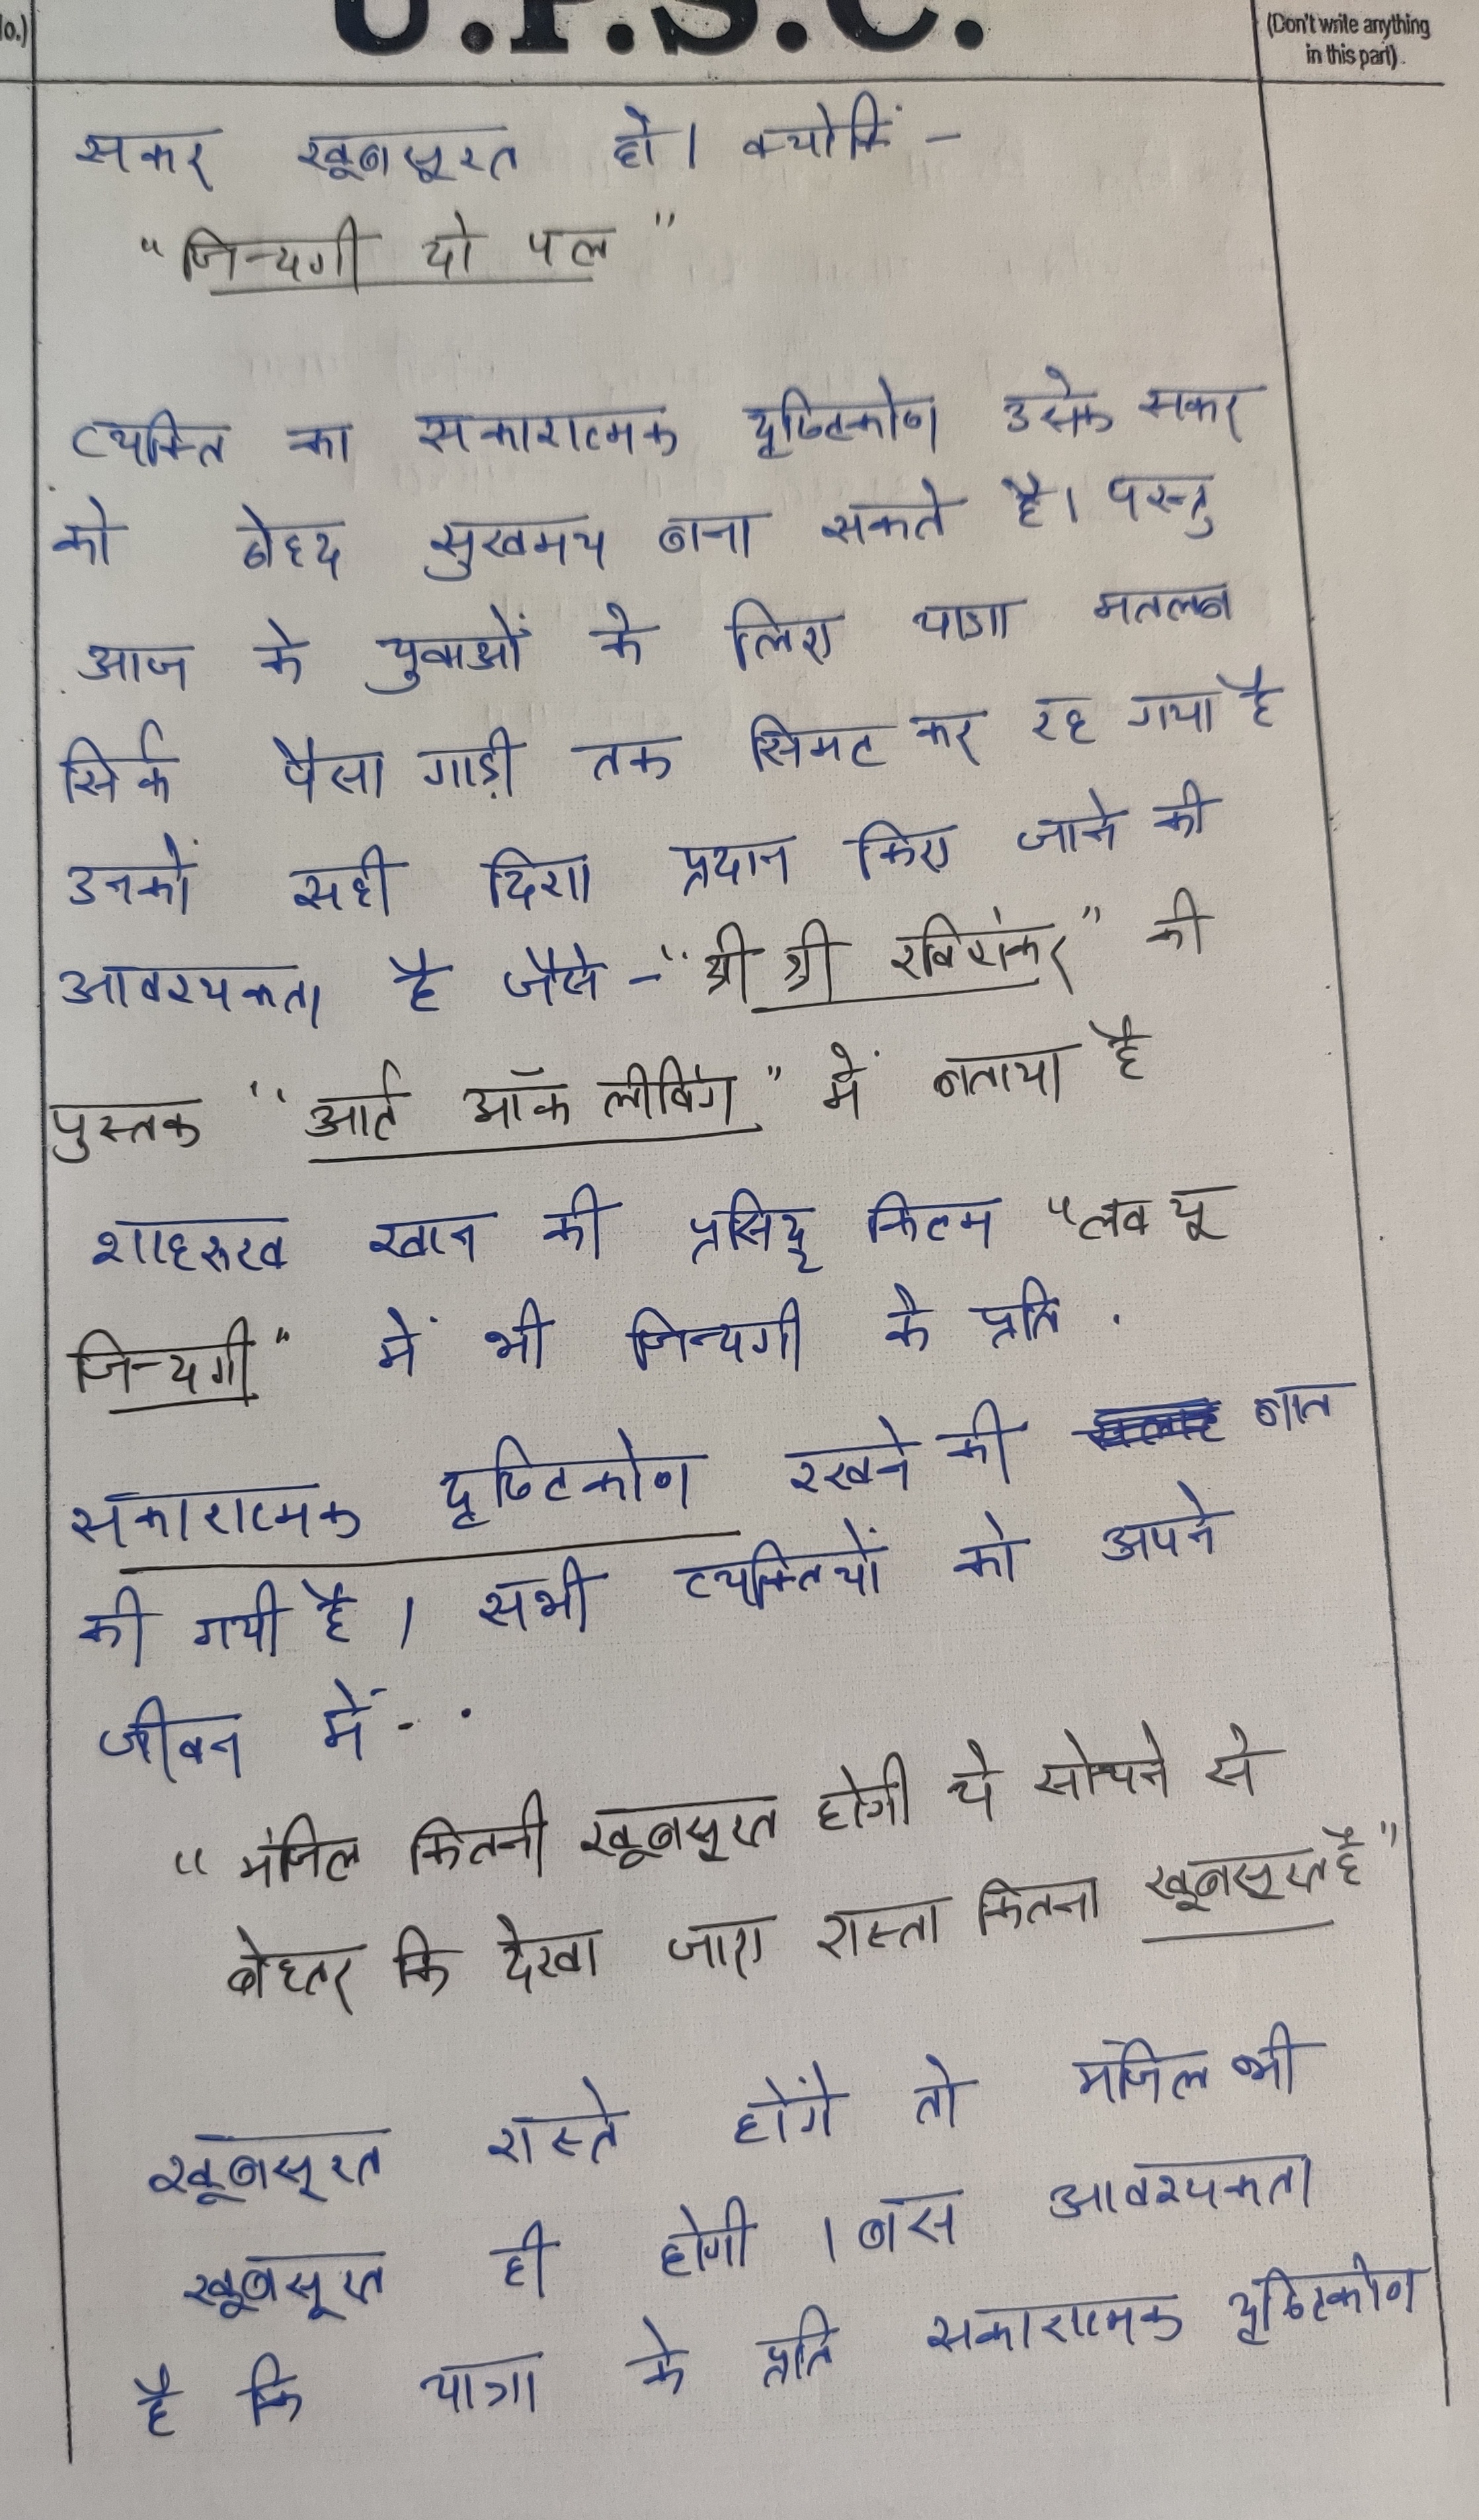 o.)
U.P.S.C.
(Don't write anything
in this part)
सफर खूबसूरत हो। क्योकिं -
"जिन्दगी दो पल"
व्यक्ति का सकारात्मक दृष्टिकोण उसके सफर
को बेहद सुखमय बना सकते है। परन्तु
आज के युवाओं के लिए यात्रा मतलब
सिर्फ पैसा गाड़ी तक सिमट कर रह गया है
उनकों सही दिशा प्रदान किए जाने की
आवश्यकता है जैसे - "श्री श्री रविशंकर" की
पुस्तक "आर्ट ऑफ लीविंग" में बताया है
शाहरूख खान की प्रसिद्ध फिल्म "लव यू
जिन्दगी" में भी जिन्दगी के प्रति .
सकारात्मक दृष्टिकोण रखने की बात
की गयी है। सभी व्यक्तियों को अपने
जीवन में - .
"मंजिल कितनी खूबसूरत होगी ये सोचने से
बेहतर कि देखा जाए रास्ता कितना खूबसूरत है"
खूबसूरत रास्ते होंगे तो मंजिल भी
खूबसूरत ही होगी । बस आवश्यकता
है कि यात्रा के प्रति सकारात्मक दृष्टिकोण